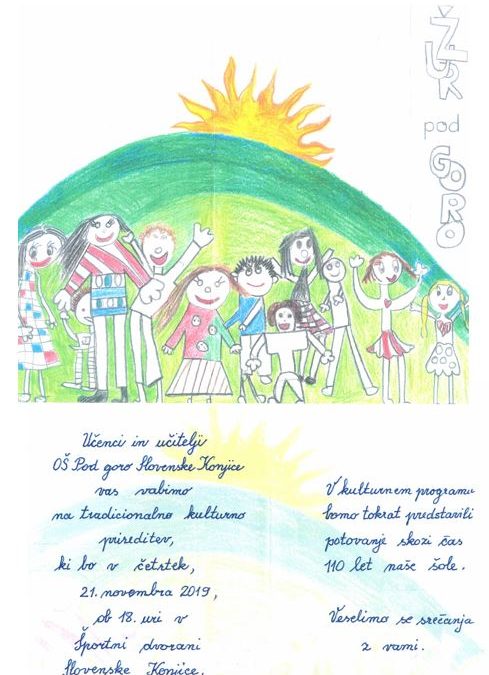 ŽUR
pod
GORO
Učenci in učitelji
OŠ Pod goro Slovenske Konjice
vas vabimo
na tradicionalno kulturno
prireditev,
ki bo v četrtek,
21. novembra 2019,
ob 18. uri v
Športni dvorani
Slovenske Konjice.
V kulturnem programu
bomo tokrat predstavili
potovanje skozi čas
110 let naše šole.
Veselimo se srečanja
z vami.